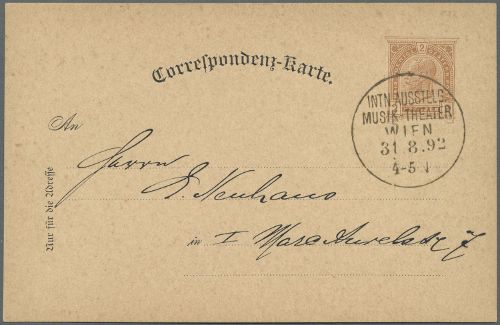 Correspondenz-Karte.
2
INTN. AUSSTELLG.
MUSIK. THEATER
WIEN
31.8.92
4-5 N
An
Herrn
E. Neuhaus
in I Marc Aurelstr 7
Nur für die Adresse